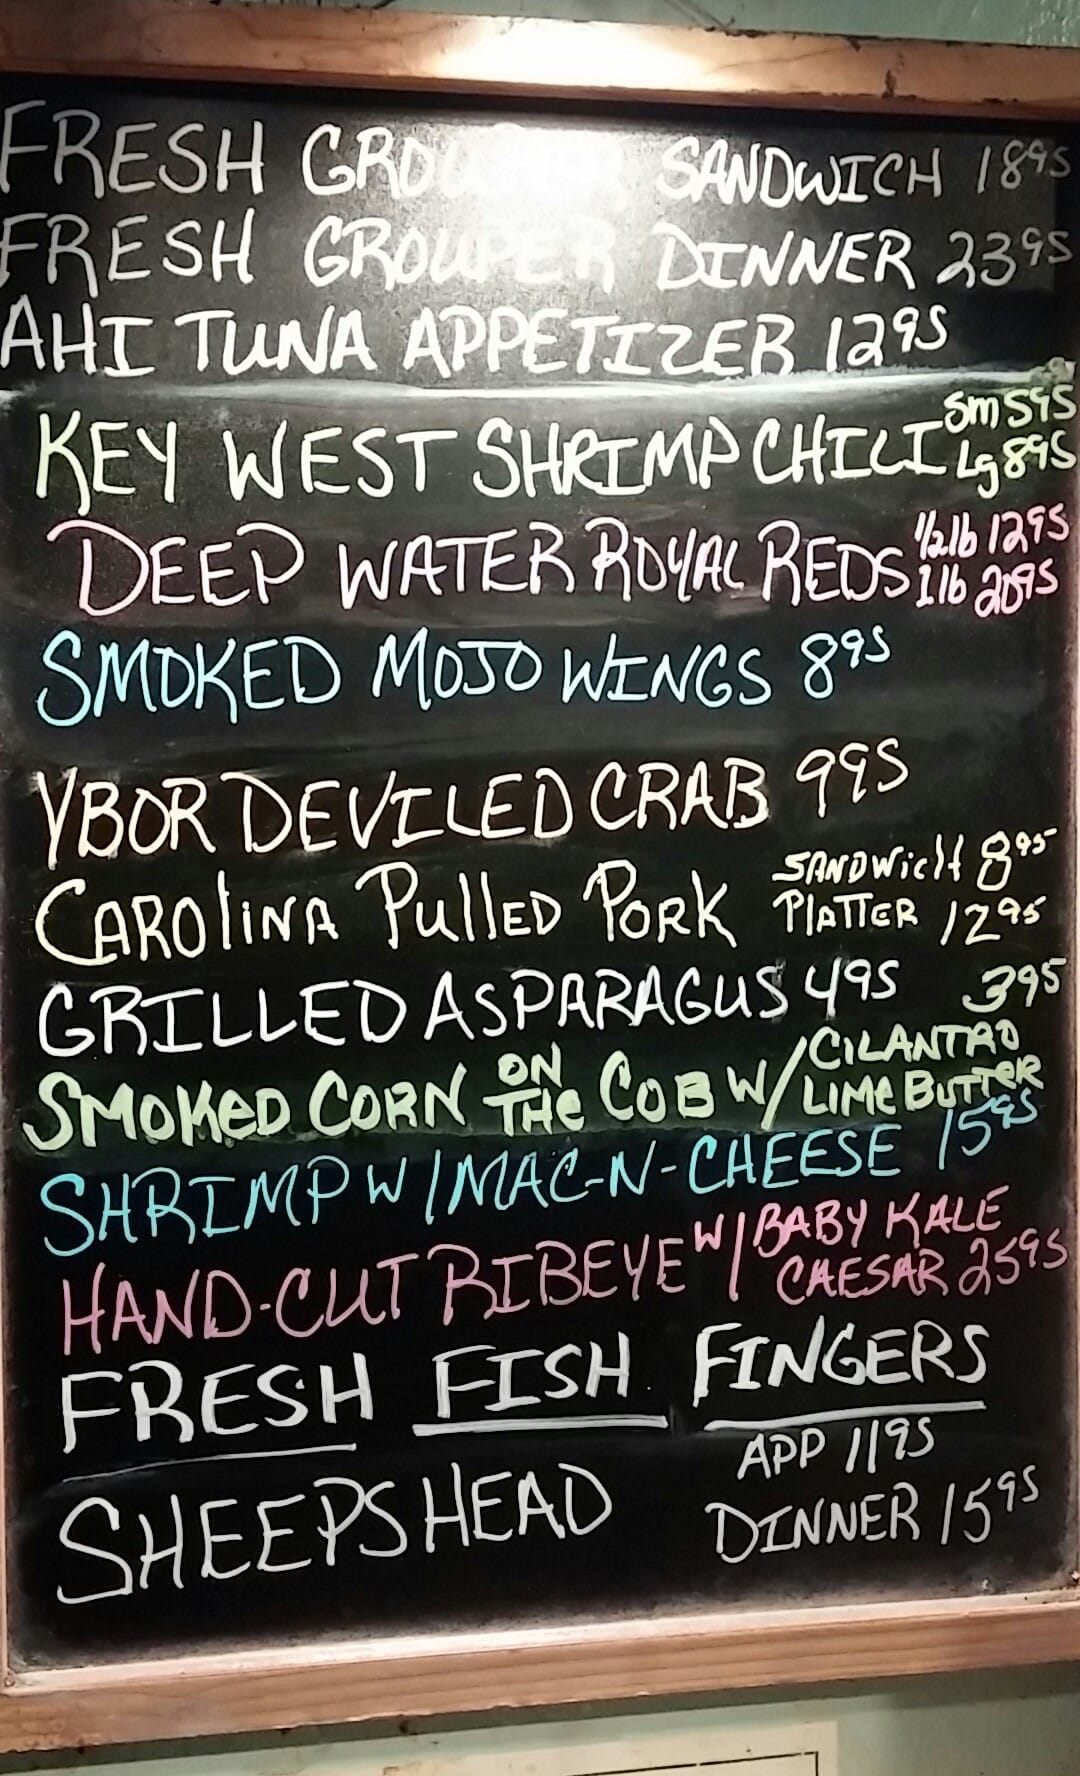 FRESH GROUPER SANDWICH 18 95
FRESH GROUPER DINNER 23 95
AHI TUNA APPETIZER 12 95
KEY WEST SHRIMP CHILI Sm 5 95
Lg 8 95
DEEP WATER ROYAL REDS 1/2 lb 12 95
1 lb 20 95
SMOKED MOJO WINGS 8 95
YBOR DEVILED CRAB 9 95
CAROLINA PULLED PORK SANDWICH 8 95
PLATTER 12 95
GRILLED ASPARAGUS 4 95
3 95
SMOKED CORN ON THE COB W/ CILANTRO
LIME BUTTER
SHRIMP W/ MAC-N-CHEESE 15 95
HAND-CUT RIBEYE W/ BABY KALE
CAESAR 25 95
FRESH FISH FINGERS
APP 11 95
SHEEPSHEAD DINNER 15 95